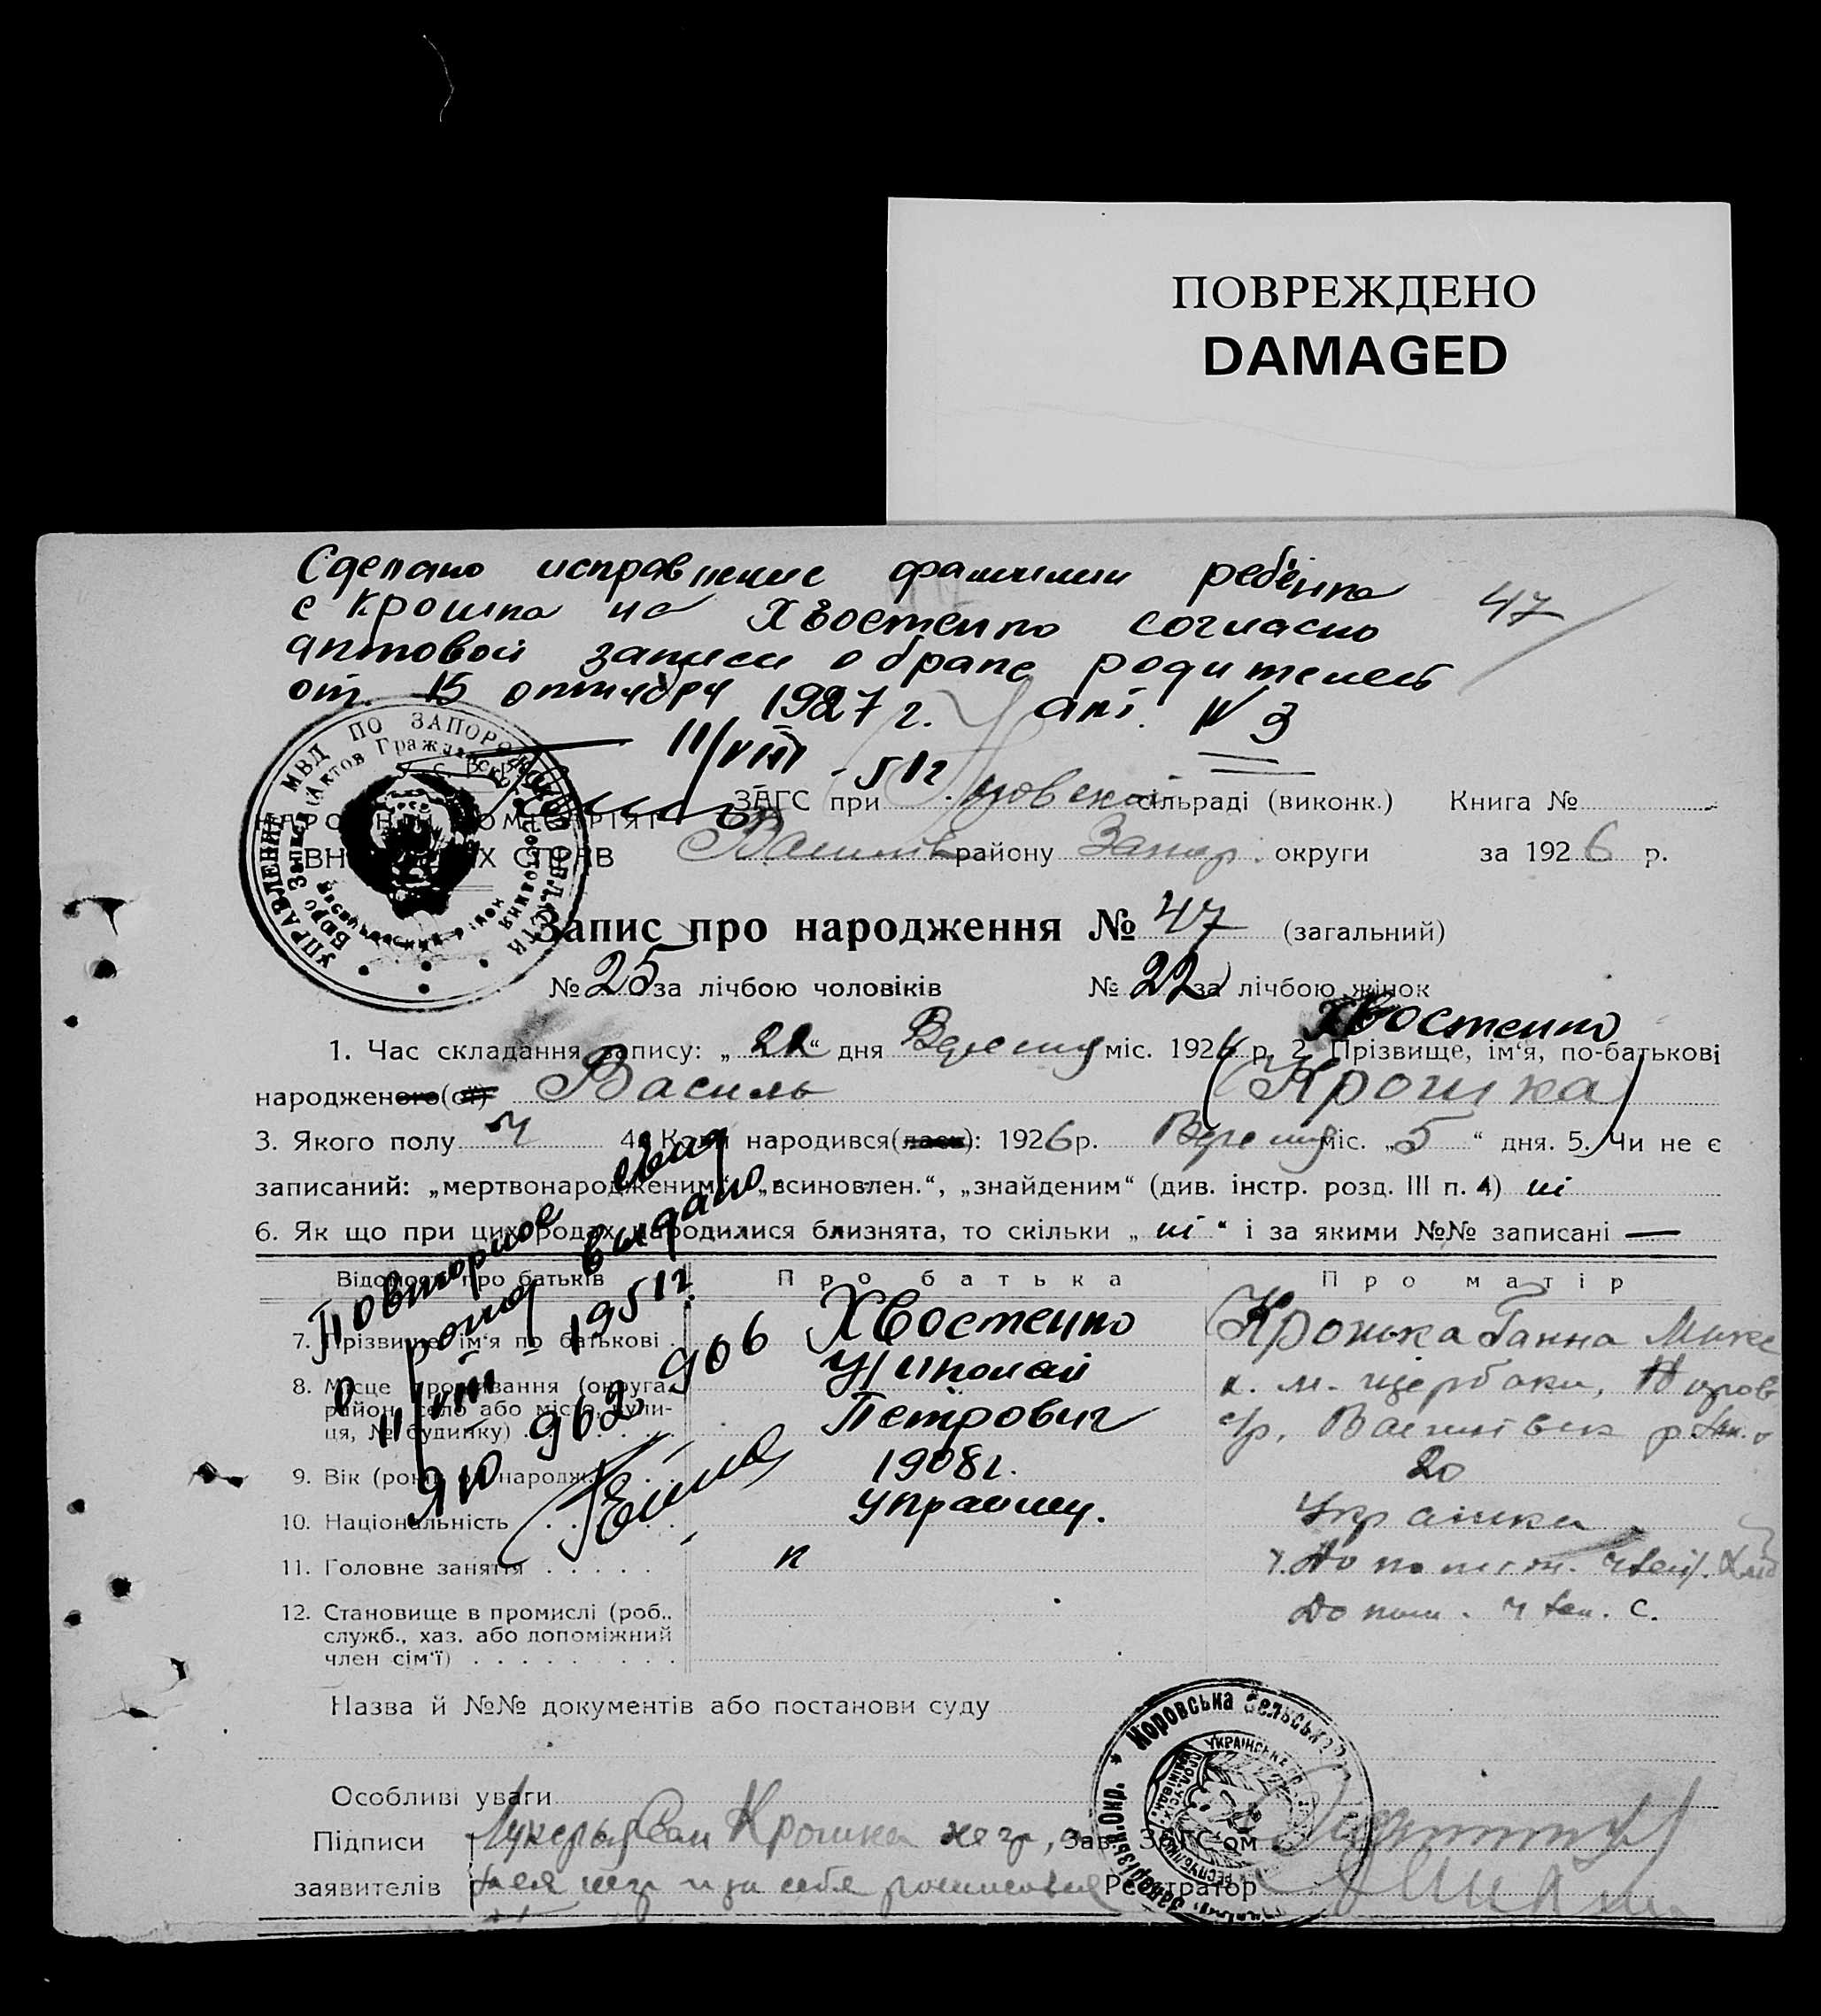 ПОВРЕЖДЕНО
DAMAGED
Сделано исправление фамилии ребёнка
с Крошка на Хвостенко согласно
актовой записи о браке родителей
от 15 октября 1927 г. акт. № 3
47
11/VIII - 51 г
УПРАВЛЕНИЕ МВД ПО ЗАПОРОЖСКОЙ ОБЛАСТИ
Бюро Записи Актов Гражданского состояния
У.С.Р.Р.
НАРОДНІЙ КОМІСАРІЯТ
ВНУТРІШНІХ СПРАВ
ЗАГС при сільраді (виконк.) Книга №
Василів району Запор. округи за 1926 р.
Запис про народження № 47 (загальний)
№ 25 за лічбою чоловіків № 22 за лічбою жінок
Хвостенко
1. Час складання запису: „22“ дня Вересня міс. 1926 р. 2. Прізвище, ім'я, по-батькові
народженого(ої) Василь (Крошка)
3. Якого полу Ч 4. Коли народився(лась): 1926 р. Вересня міс. „5“ дня. 5. Чи не є
записаний: „мертвонародженим“, „всиновлен.“, „знайденим“ (див. інстр. розд. III п. 4) ні
6. Як що при цих родах народилися близнята, то скільки „ні“ і за якими №№ записані —
Повторное свид
о рожд выдано
11/VIII - 1951 г.
ЯЮ 962906
Відомости про батьків Про батька Про матір
7. Прізвище, ім'я по батькові Хвостенко Крошка Ганна
Николай
8. Місце проживання (округа,
район, село або місто, вули-
ця, № будинку) Петрович
9. Вік (років од народж.) 1908 г. 20
10. Національність украинц. Українка
11. Головне заняття
12. Становище в промислі (роб.,
служб., хаз. або допоміжний
член сім'ї)
Назва й №№ документів або постанови суду
Особливі уваги
Підписи Крошка Зав. ЗАГС'ом
заявителів Реєстратор